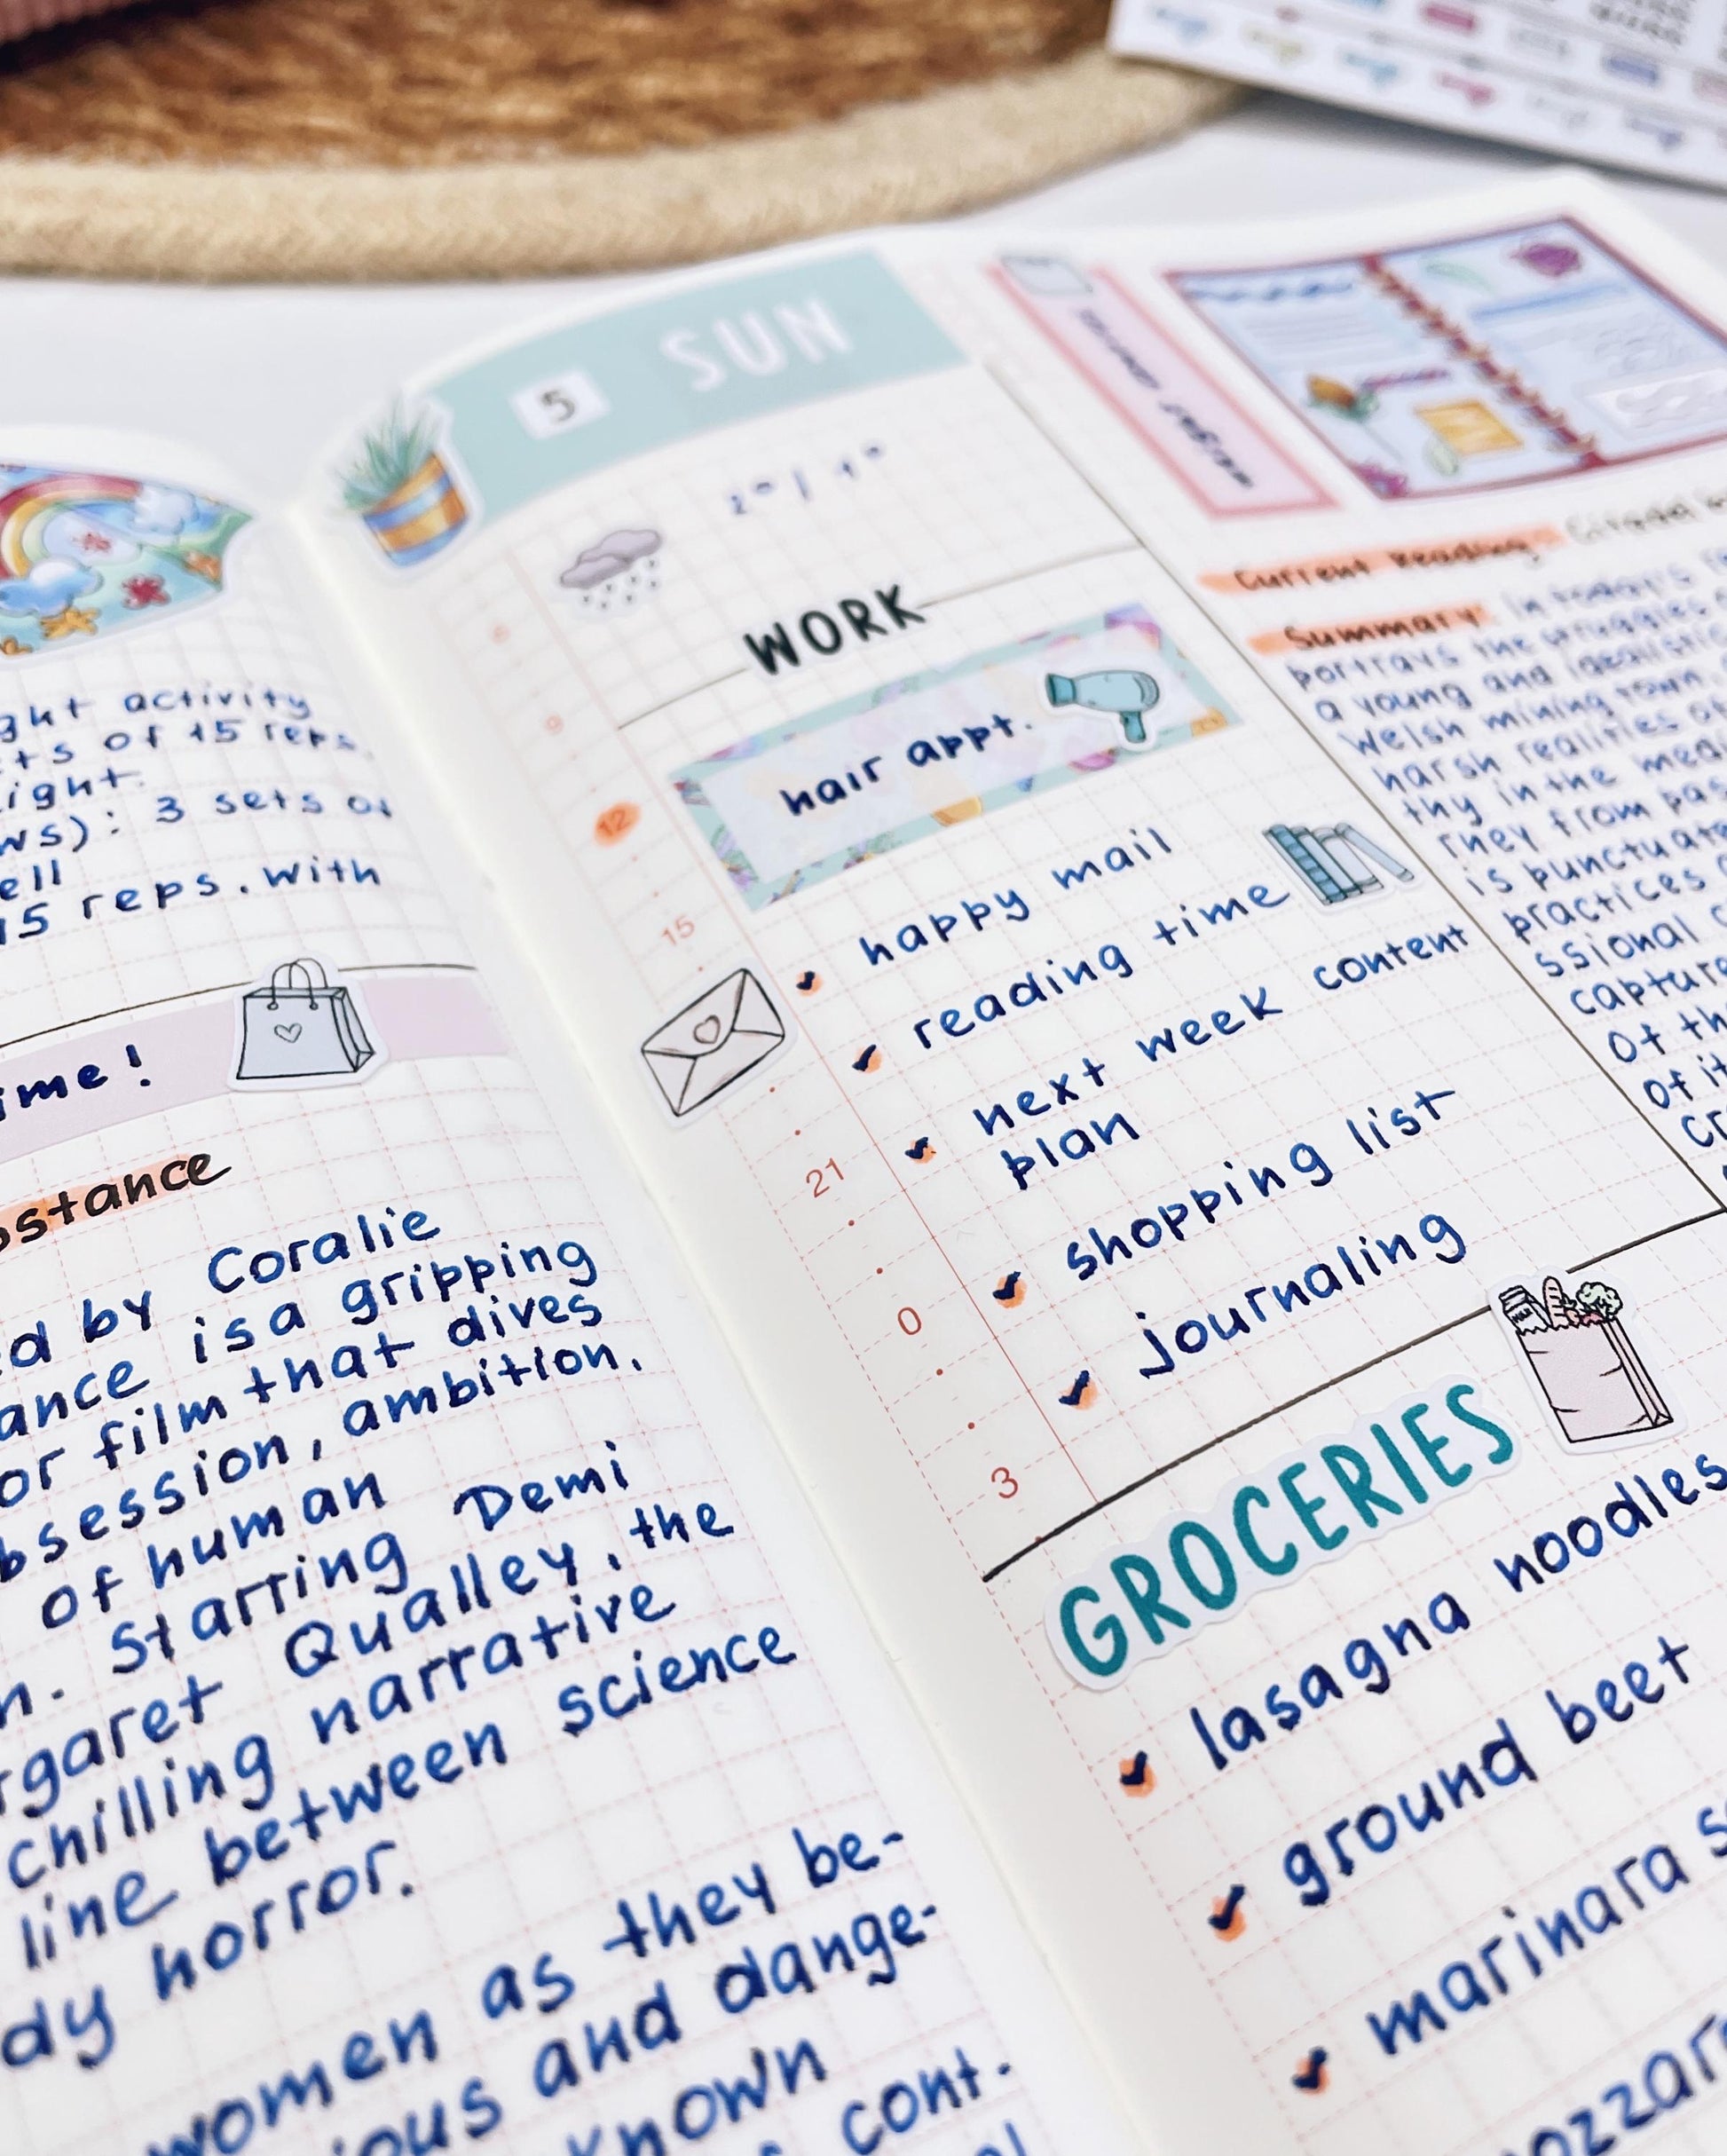 ght activity
ts of 15 reps.
ight.
ws): 3 sets of
ell
15 reps. with
ime!
bstance
ed by Coralie
ance is a gripping
or film that dives
bsession, ambition,
of human
n. Starring Demi
rgaret Qualley, the
chilling narrative
line between science
dy horror.
women as they be-
ious and dange-
known
cont.
5 SUN
WORK
hair appt.
happy mail
reading time
next week content
plan
shopping list
journaling
GROCERIES
lasagna noodles
ground beef
marinara s
ozzar
9
12
15
21
0
3
Current Reading: Citadel
Summary: In today's
portrays the struggles
a young and idealistic
Welsh mining town.
harsh realities of
thy in the medi
rney from pas
is punctuate
practices
ssional c
capture
of th
of it
cr